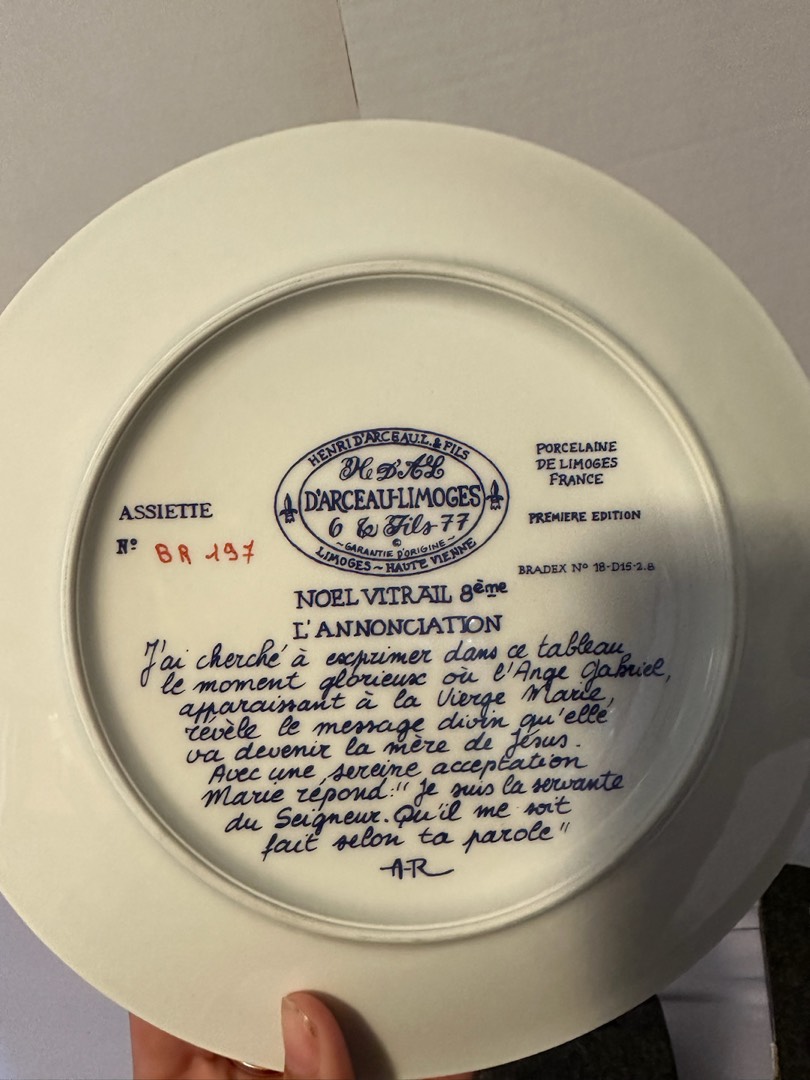 HENRI D'ARCEAU.L.& FILS
H D'A&L
D'ARCEAU-LIMOGES
6 & Fils 77
©
~GARANTIE D'ORIGINE~
LIMOGES ~ HAUTE VIENNE
ASSIETTE
Nº BR 197
PORCELAINE
DE LIMOGES
FRANCE
PREMIERE EDITION
BRADEX Nº 18-D15-2.8
NOEL VITRAIL 8ème
L'ANNONCIATION
J'ai cherché à exprimer dans ce tableau
le moment glorieux où l'Ange Gabriel,
apparaissant à la Vierge Marie,
révèle le message divin qu'elle
va devenir la mère de Jésus.
Avec une sereine acceptation
Marie répond: "Je suis la servante
du Seigneur. Qu'il me soit
fait selon ta parole"
A-R